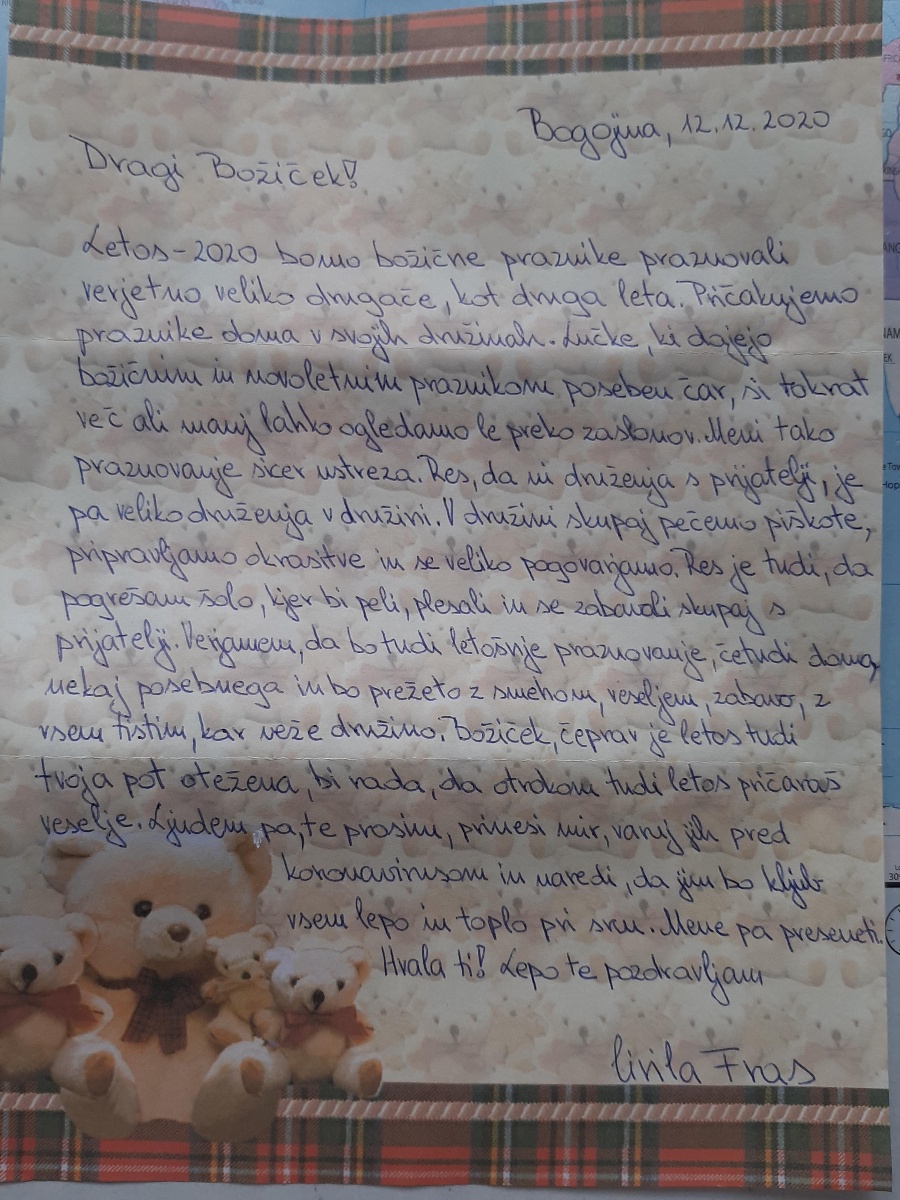 Bogojina, 12.12.2020
Dragi Božiček!
Letos-2020 bomo božične praznike praznovali
verjetno veliko drugače, kot druga leta. Pričakujemo
praznike doma v svojih družinah. Lučke, ki dajejo
božičnim in novoletnim praznikom poseben čar, si tokrat
več ali manj lahko ogledamo le preko zaslonov. Meni tako
praznovanje sicer ustreza. Res, da ni druženja s prijatelji, je
pa veliko druženja v družini. V družini skupaj pečemo piškote,
pripravljamo okrasitve in se veliko pogovarjamo. Res je tudi, da
pogrešam šolo, kjer bi peli, plesali in se zabavali skupaj s
prijatelji. Verjamem, da bo tudi letošnje praznovanje, četudi doma,
nekaj posebnega in bo prežeto z smehom, veseljem, zabavo, z
vsem tistim, kar veže družino. Božiček, čeprav je letos tudi
tvoja pot otežena, bi rada, da otrokom tudi letos pričaraš
veselje. Ljudem pa, te prosim, prinesi mir, varuj jih pred
koronavirusom in naredi, da jim bo kljub
vsem lepo in toplo pri srcu. Mene pa preseneti.
Hvala ti! Lepo te pozdravljam
Fras